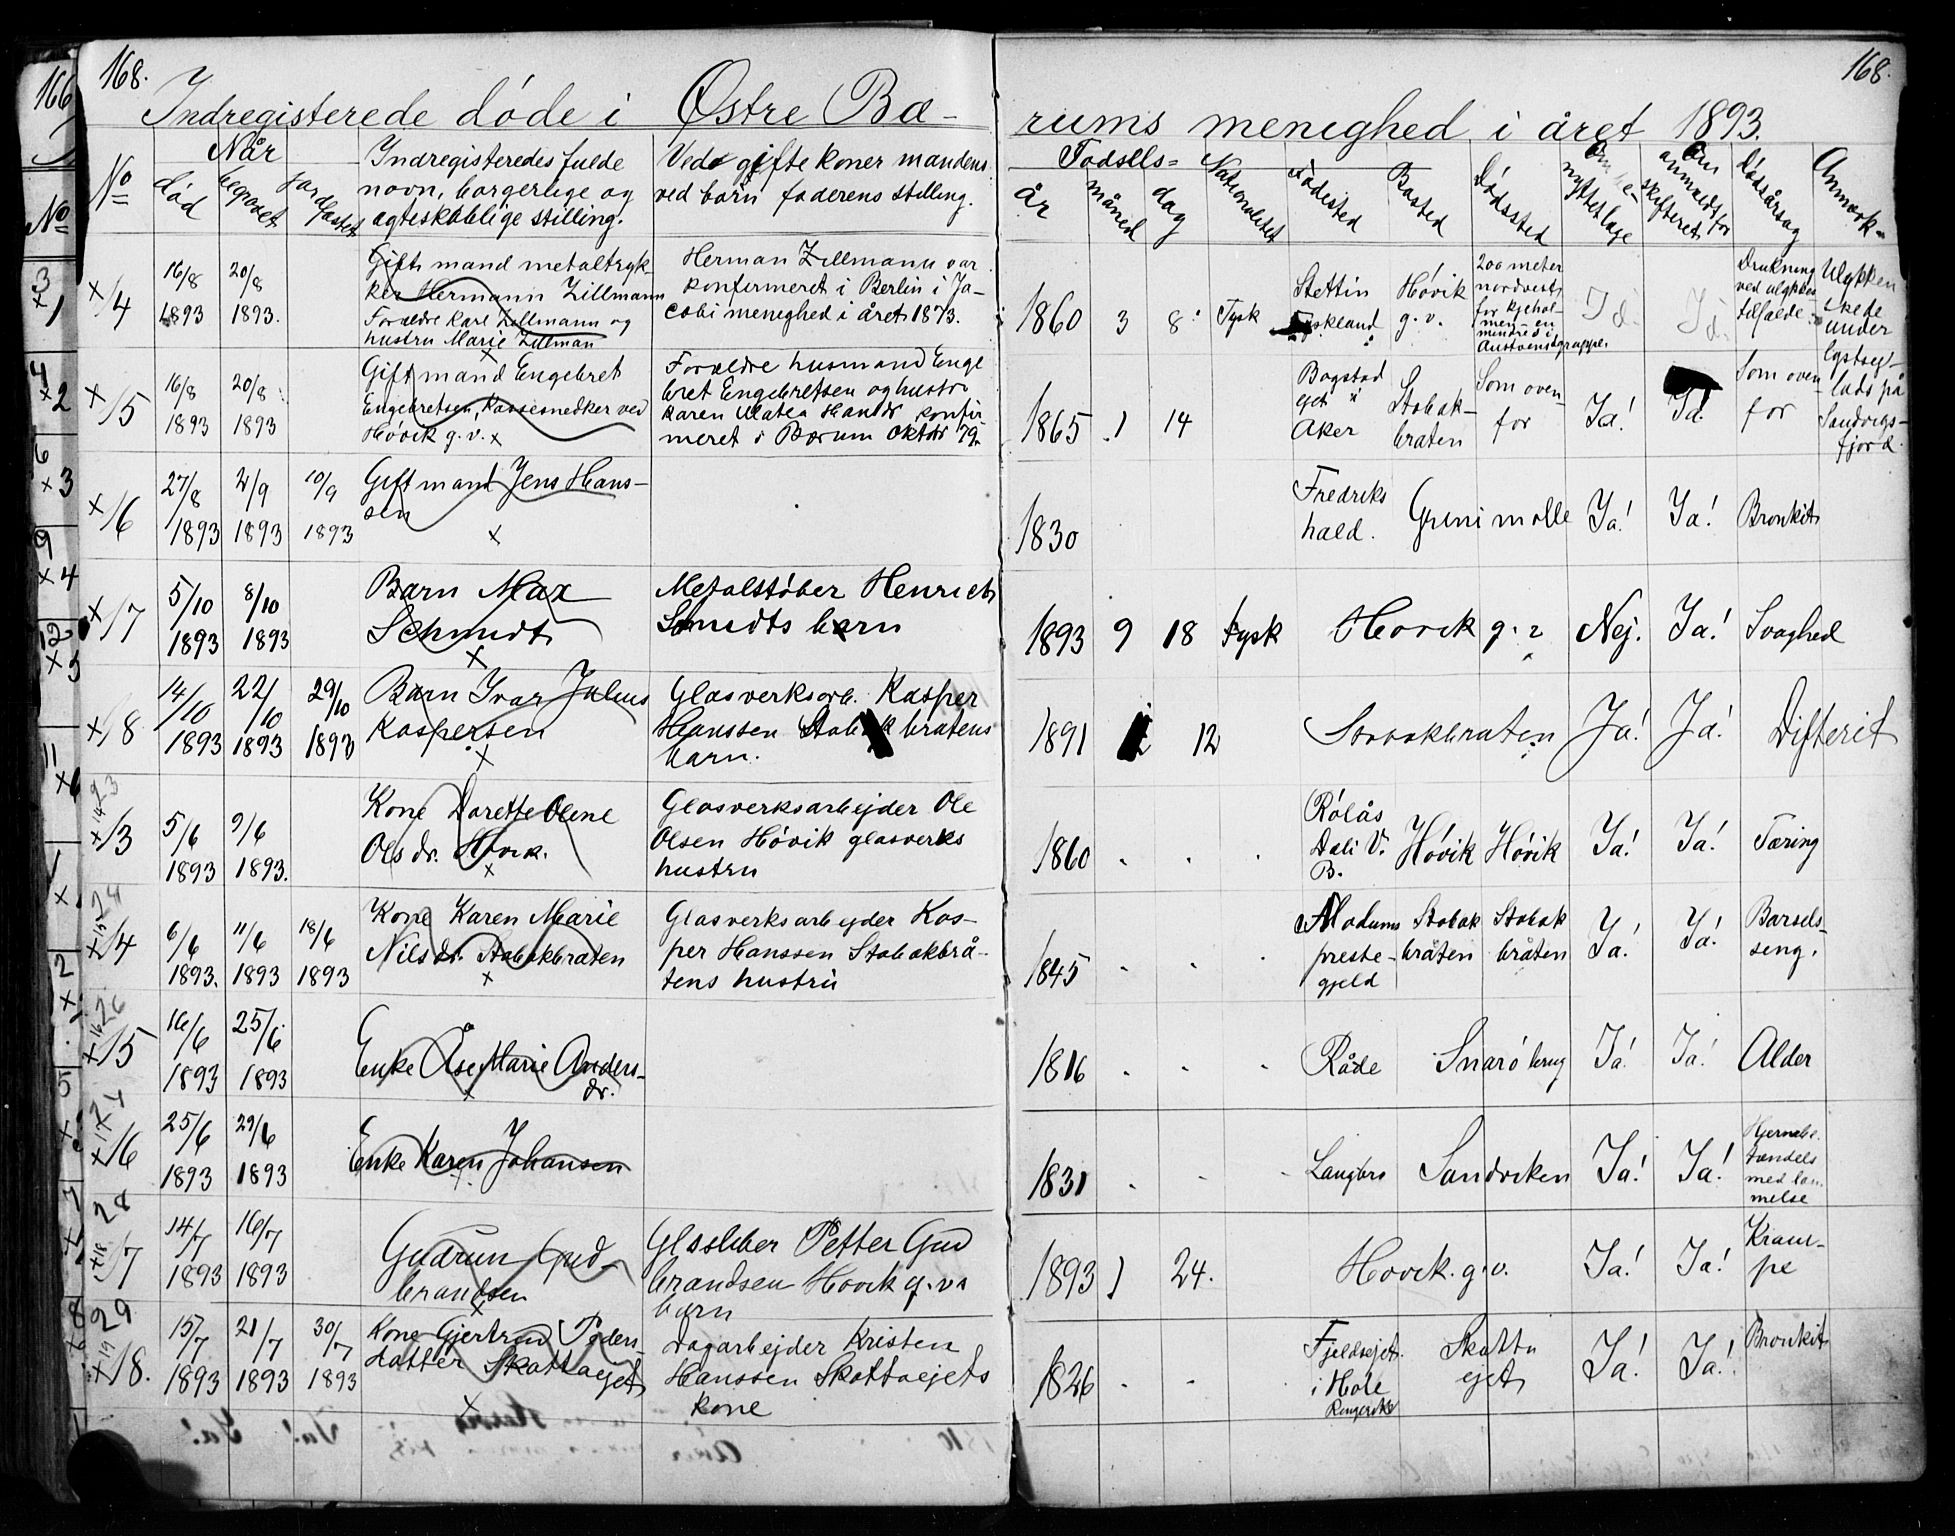 168.
168.
166
Indregisterede døde i Østre Bæ-
rums menighed i året 1893.
No
Når
død
begravet
jordfæstet
Indregisteredes fulde
navn, borgerlige og
ægteskabelige stilling.
Ved gifte koner mandens
ved børn faderens stilling.
Fødsels=
år
måned
dag
Nationalitet
Fødested
Bosted
Dødssted
Om
nyttet læge
Om
anmeldt for
skifteret
Dødsårsag
Anmærk=
14
16/8
1893
20/8
1893.
Gift mand metaltryk-
ker Hermann Zillmann
Forældre Karl Zillmann og
hustru Marie Zillman
Herman Zillmann var
konfirmeret i Berlin i Ja-
cobi menighed i året 1873.
1860 3 8 Tysk
Stettin
Tyskland
Høvik
g. v.
200 meter
nordvest
for Kjehol-
men - en
mindre i
Ja
Ja
Drukning
ved ulykkes
tilfælde
Ulykken
skede
under
lystsej-
lads på
Sandvigs-
fjord
15
16/8
1893
20/8
1893
Gift mand Engebret
Engebretsen, kassesnedker ved
Høvik g. v.
Forældre husmand Enge
bret Engebretsen og hustru
Karen Matea Hansdr. konfir
meret i Bærum Oktbr 79.
1865 1 14
Bogstad
ejet
Aker
Stabæk-
bråten
Som oven-
for
Ja!
Ja
Som oven
for
16
27/8
1893
2/9
1893
10/9
1893
Gift mand Jens Hans-
sen
1830
Fredriks
hald.
Grini mølle Ja! Ja! Bronkit
17
5/10
1893
8/10
1893
Barn Max
Schmidt
Metalstøber Henrich
Smidts barn
1893 9 18 Tysk Høvik g. v. Nej. Ja! Svaghed
18
14/10
1893
22/10
1893
29/10
1893
Barn Ivar Julius
Kaspersen
Glasverksarb. Kasper
Hanssen Stabækbråtens
barn.
1891 12 Stabækbråten Ja! Ja! Difterit
13
5/6
1893
9/6
1893.
Kone Dorette Olene
Olsdr. Høvik.
Glasverksarbejder Ole
Olsen Høvik glasverks
hustru
1860
Rølås
Dali V.
B.
Høvik Høvik Ja! Ja! Tæring
14
6/6
1893.
11/6
1893
18/6
1893
Kone Karen Marie
Nilsdr. Stabækbråten
Glasverksarbejder Kas-
per Hanssen Stabækbrå-
tens hustru
1845
Modums
preste-
gjeld
Stabæk
bråten
Stabæk
bråten
Ja!
Ja!
Barsels-
seng.
15
16/6
1893
25/6
1893
Enke Åse Marie Anders-
dr.
1816 Råde Snarøbrug Ja! Ja! Alder
16
25/6
1893
29/6
1893
Enke Karen Johansen
1831 Sandviken Ja! Ja!
Hjernebe.
tændels
med lam
melse
28
17
14/7
1893
16/7
1893
Gudrun Gud-
brandsen
Glassliber Petter Gud
brandsen Høvik g. v.s
barn
1893 1 24. Høvik. g. v. Ja! Ja!
Kram-
pe
29
18.
15/7
1893
21/7
1893
30/7
1893
Kone Gjertrud Peders-
datter Skattaejet
Dagarbejder Kristen
Hanssen Skattaejets
kone
1826
Fjeldsejet.
i Hole
Ringerike
Skatta
ejet
Ja! Ja! Bronkit